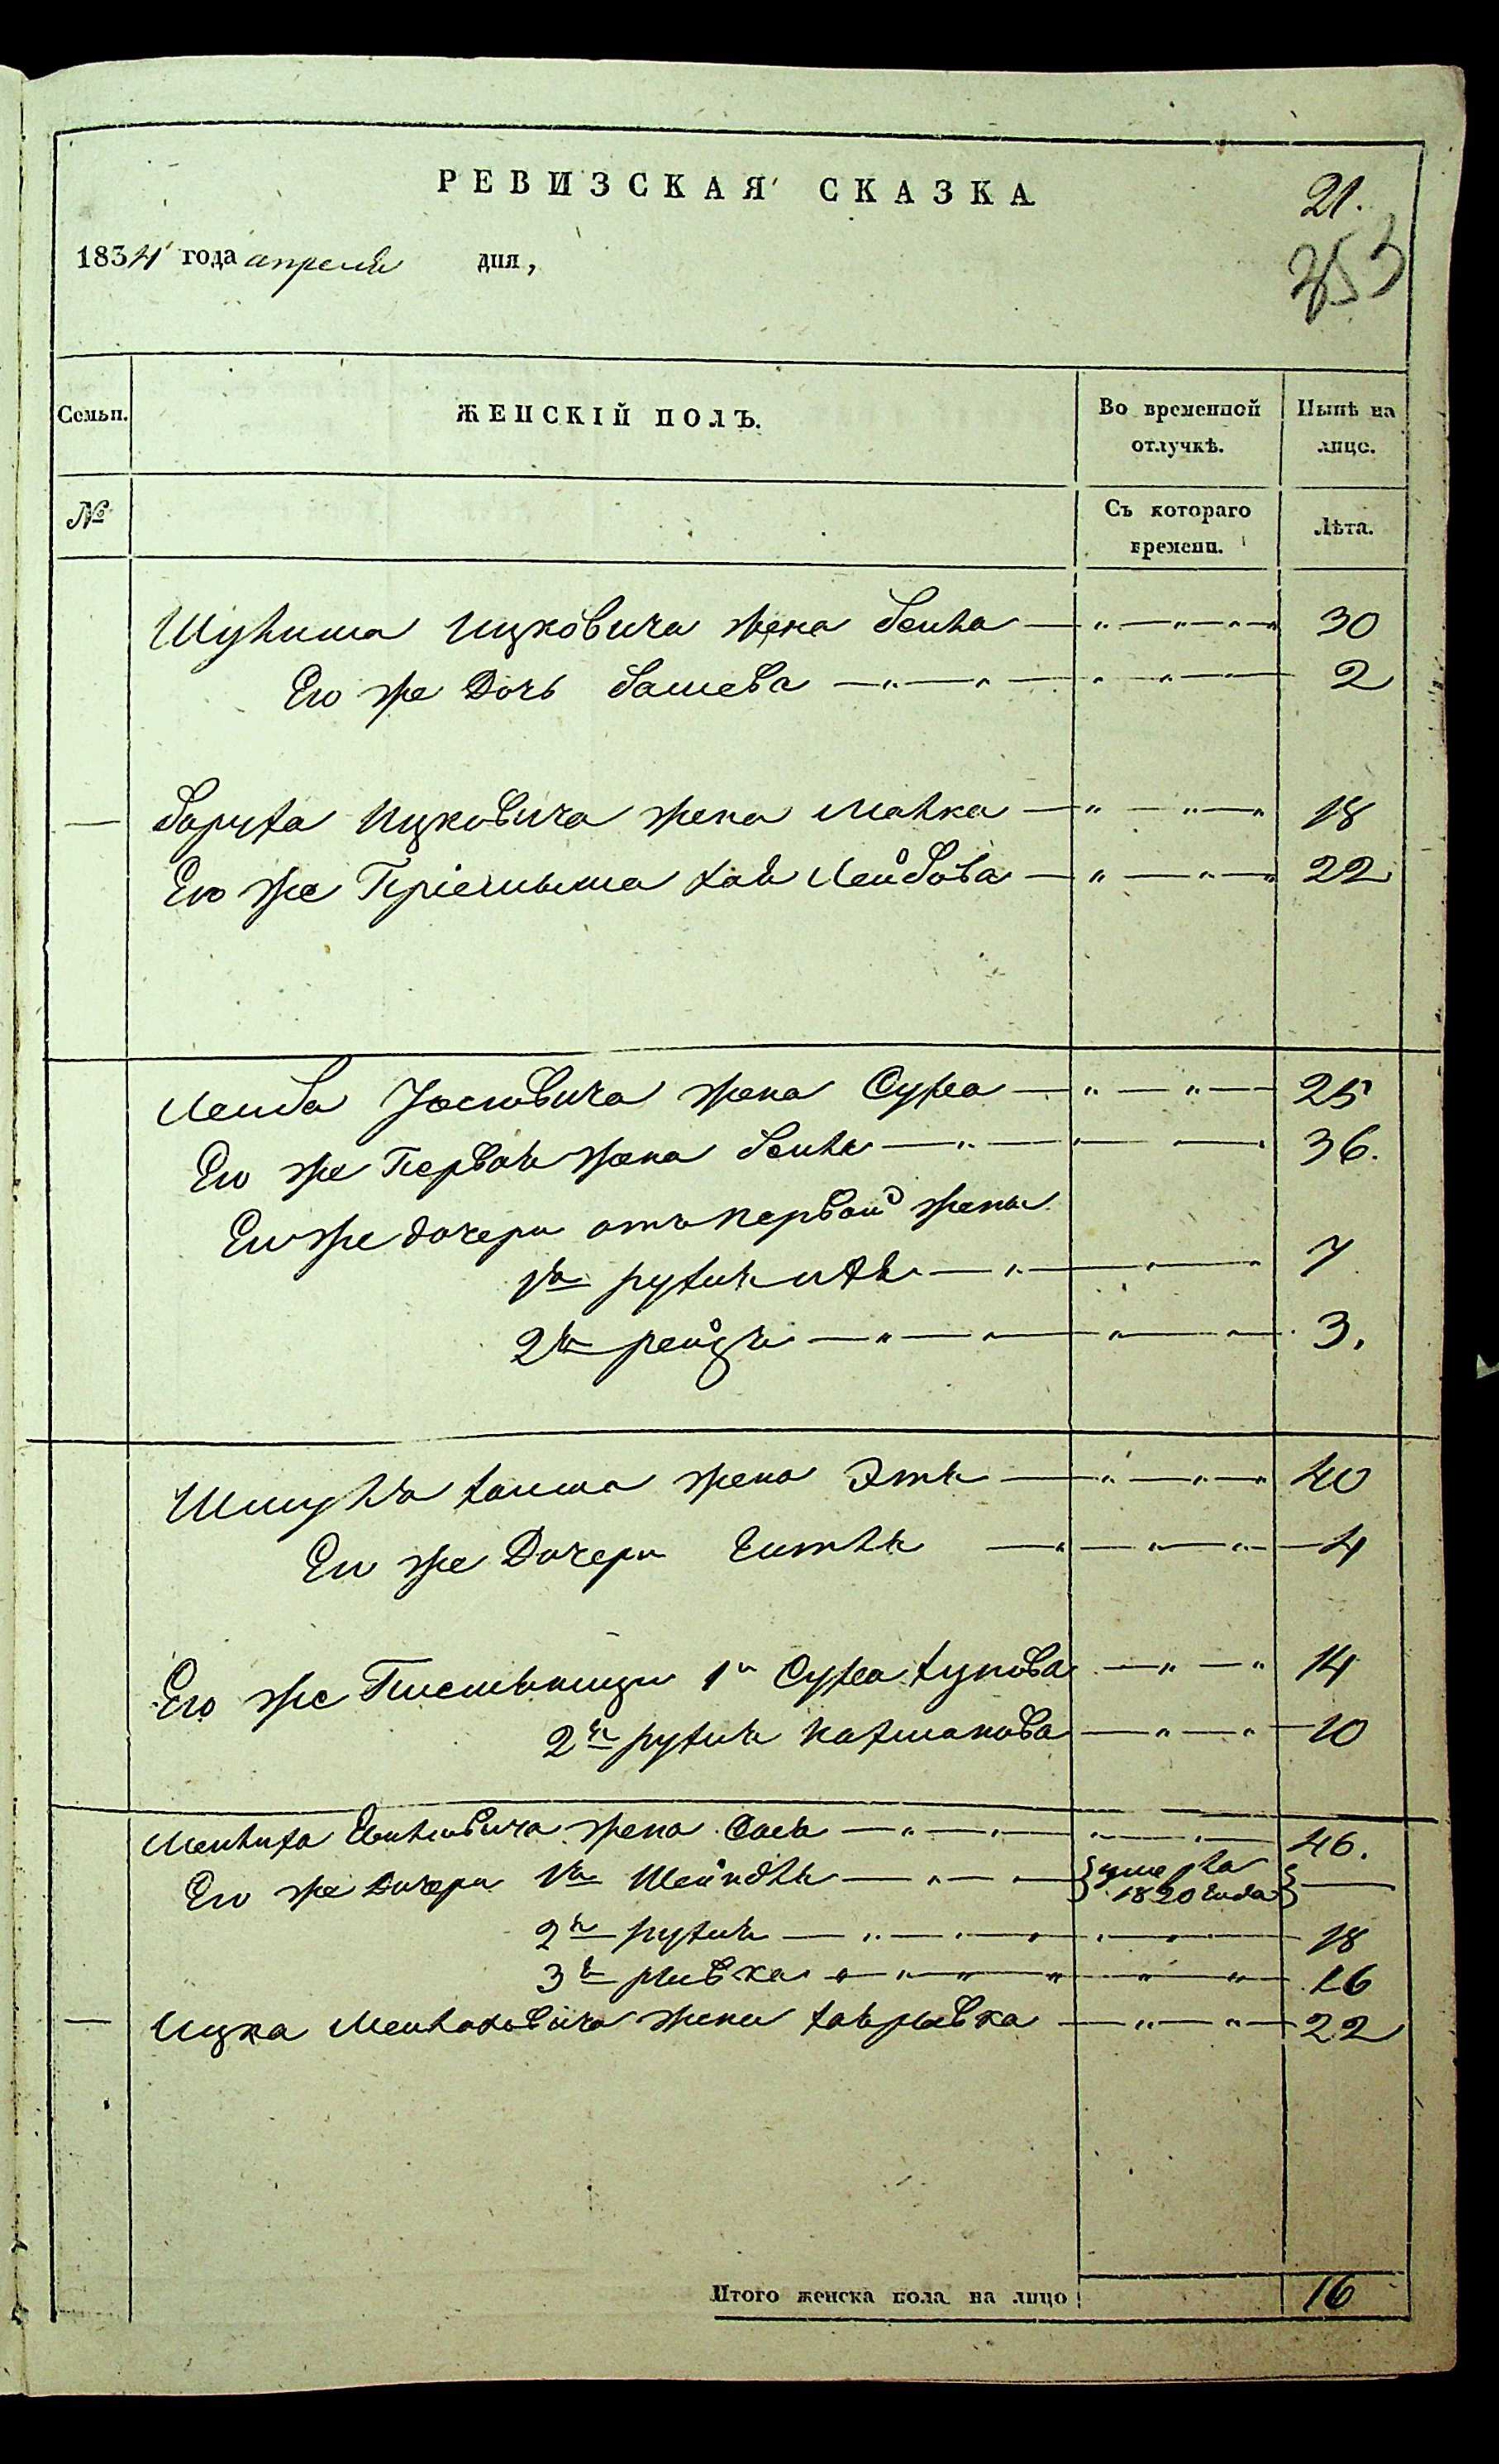 РЕВИЗСКАЯ СКАЗКА
21.
353
1834 года апреля дня,
Семьи.
ЖЕНСКІЙ ПОЛЪ.
Во временной отлучкѣ.
Нынѣ на лицо.
№
Съ котораго времени.
Лѣта.
Ицковича жена Бейла — 30
Его же Дочь Башева — 2
— Боруха Ицковича жена Малка — 18
Его же Пріемыша хая Лейбова — 22
Лейба Іосіовича жена Сура — 25
Его же Первая жена Бейла — 36.
Его же дочери отъ первой жены
1я рухля — 7
2я рейзя — 3.
Шмуйла хаима жена Этля — 40
Его же Дочери Гитля — 4
Его же 1я Сура — 14
2я рухля — 10
Жена Сося — 46.
Его же Дочери 1я Шейндля — умерла 1820 года —
2я рухля — 18
3я ривка — 16
— Ицка жена хаяривка — 22
Итого женска пола на лицо 16